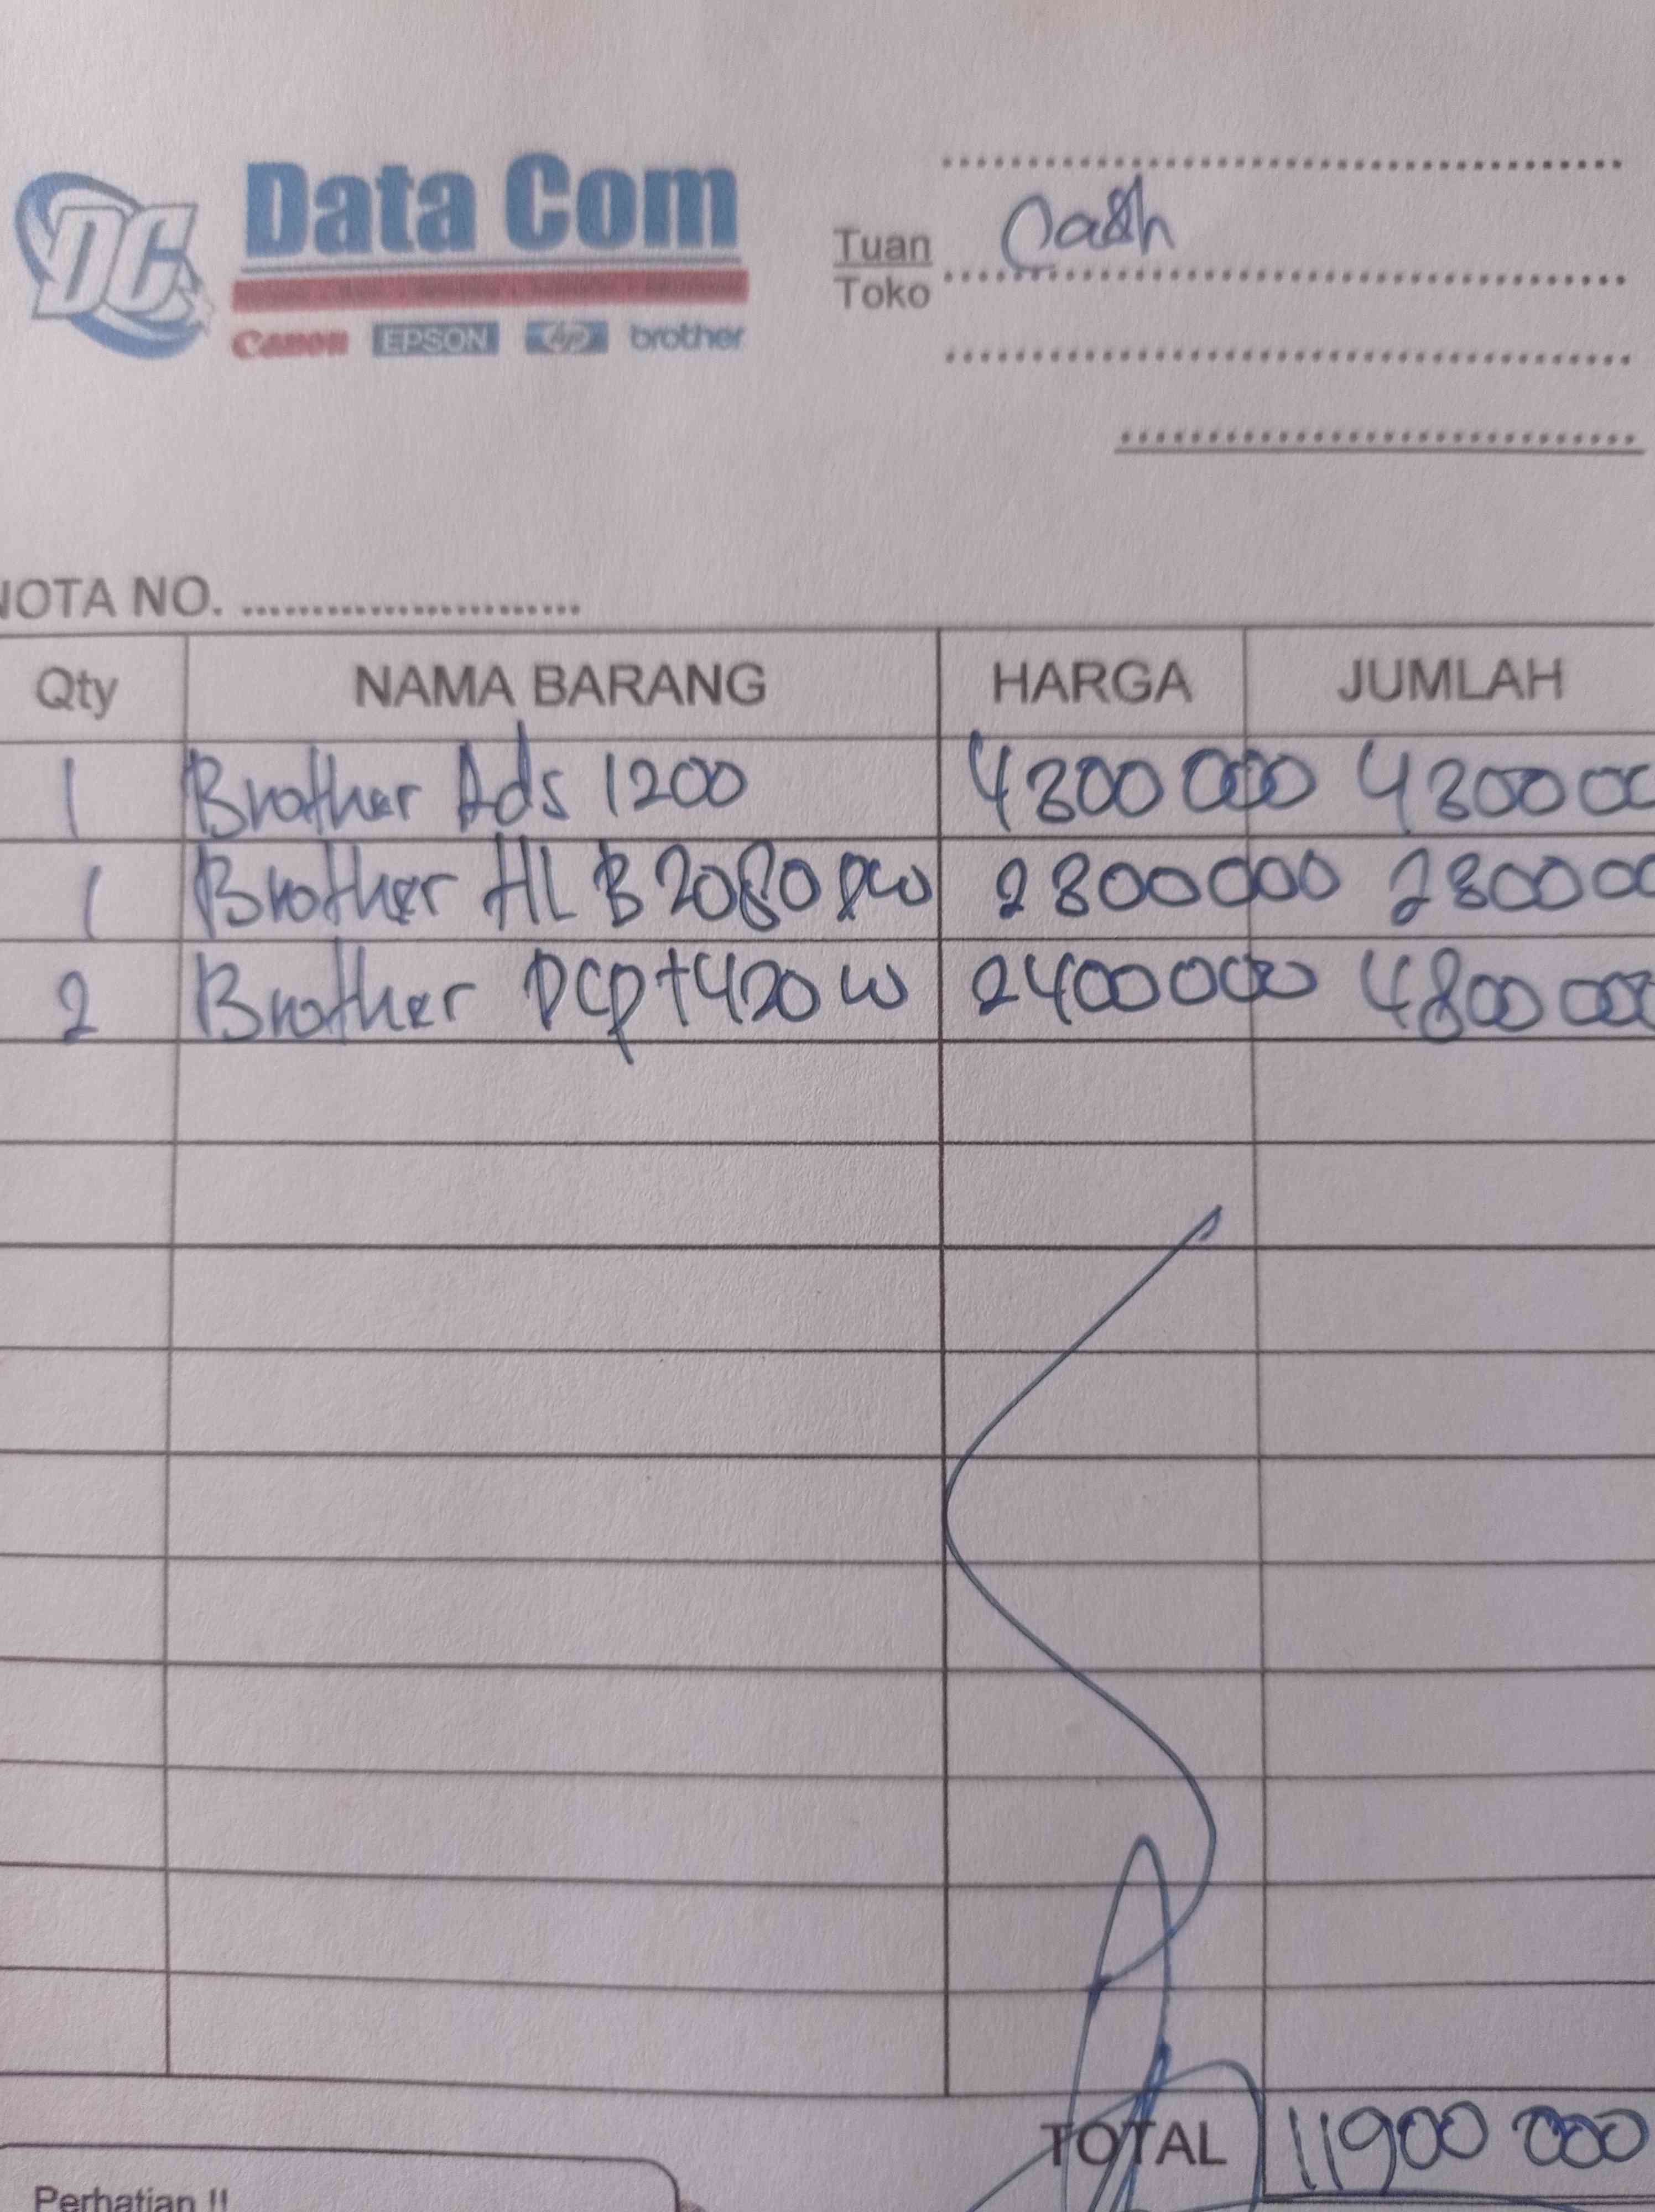 DC Data Com
Canon EPSON hp brother
Tuan Cash
Toko
NOTA NO. ........................
Qty NAMA BARANG HARGA JUMLAH
1 Brother Ads 1200 4300 000 4300 00
1 Brother HL B 2080 DW 2800000 2800 00
2 Brother DCP t420 w 2400000 4800 000
TOTAL 11900 000
Perhatian !!